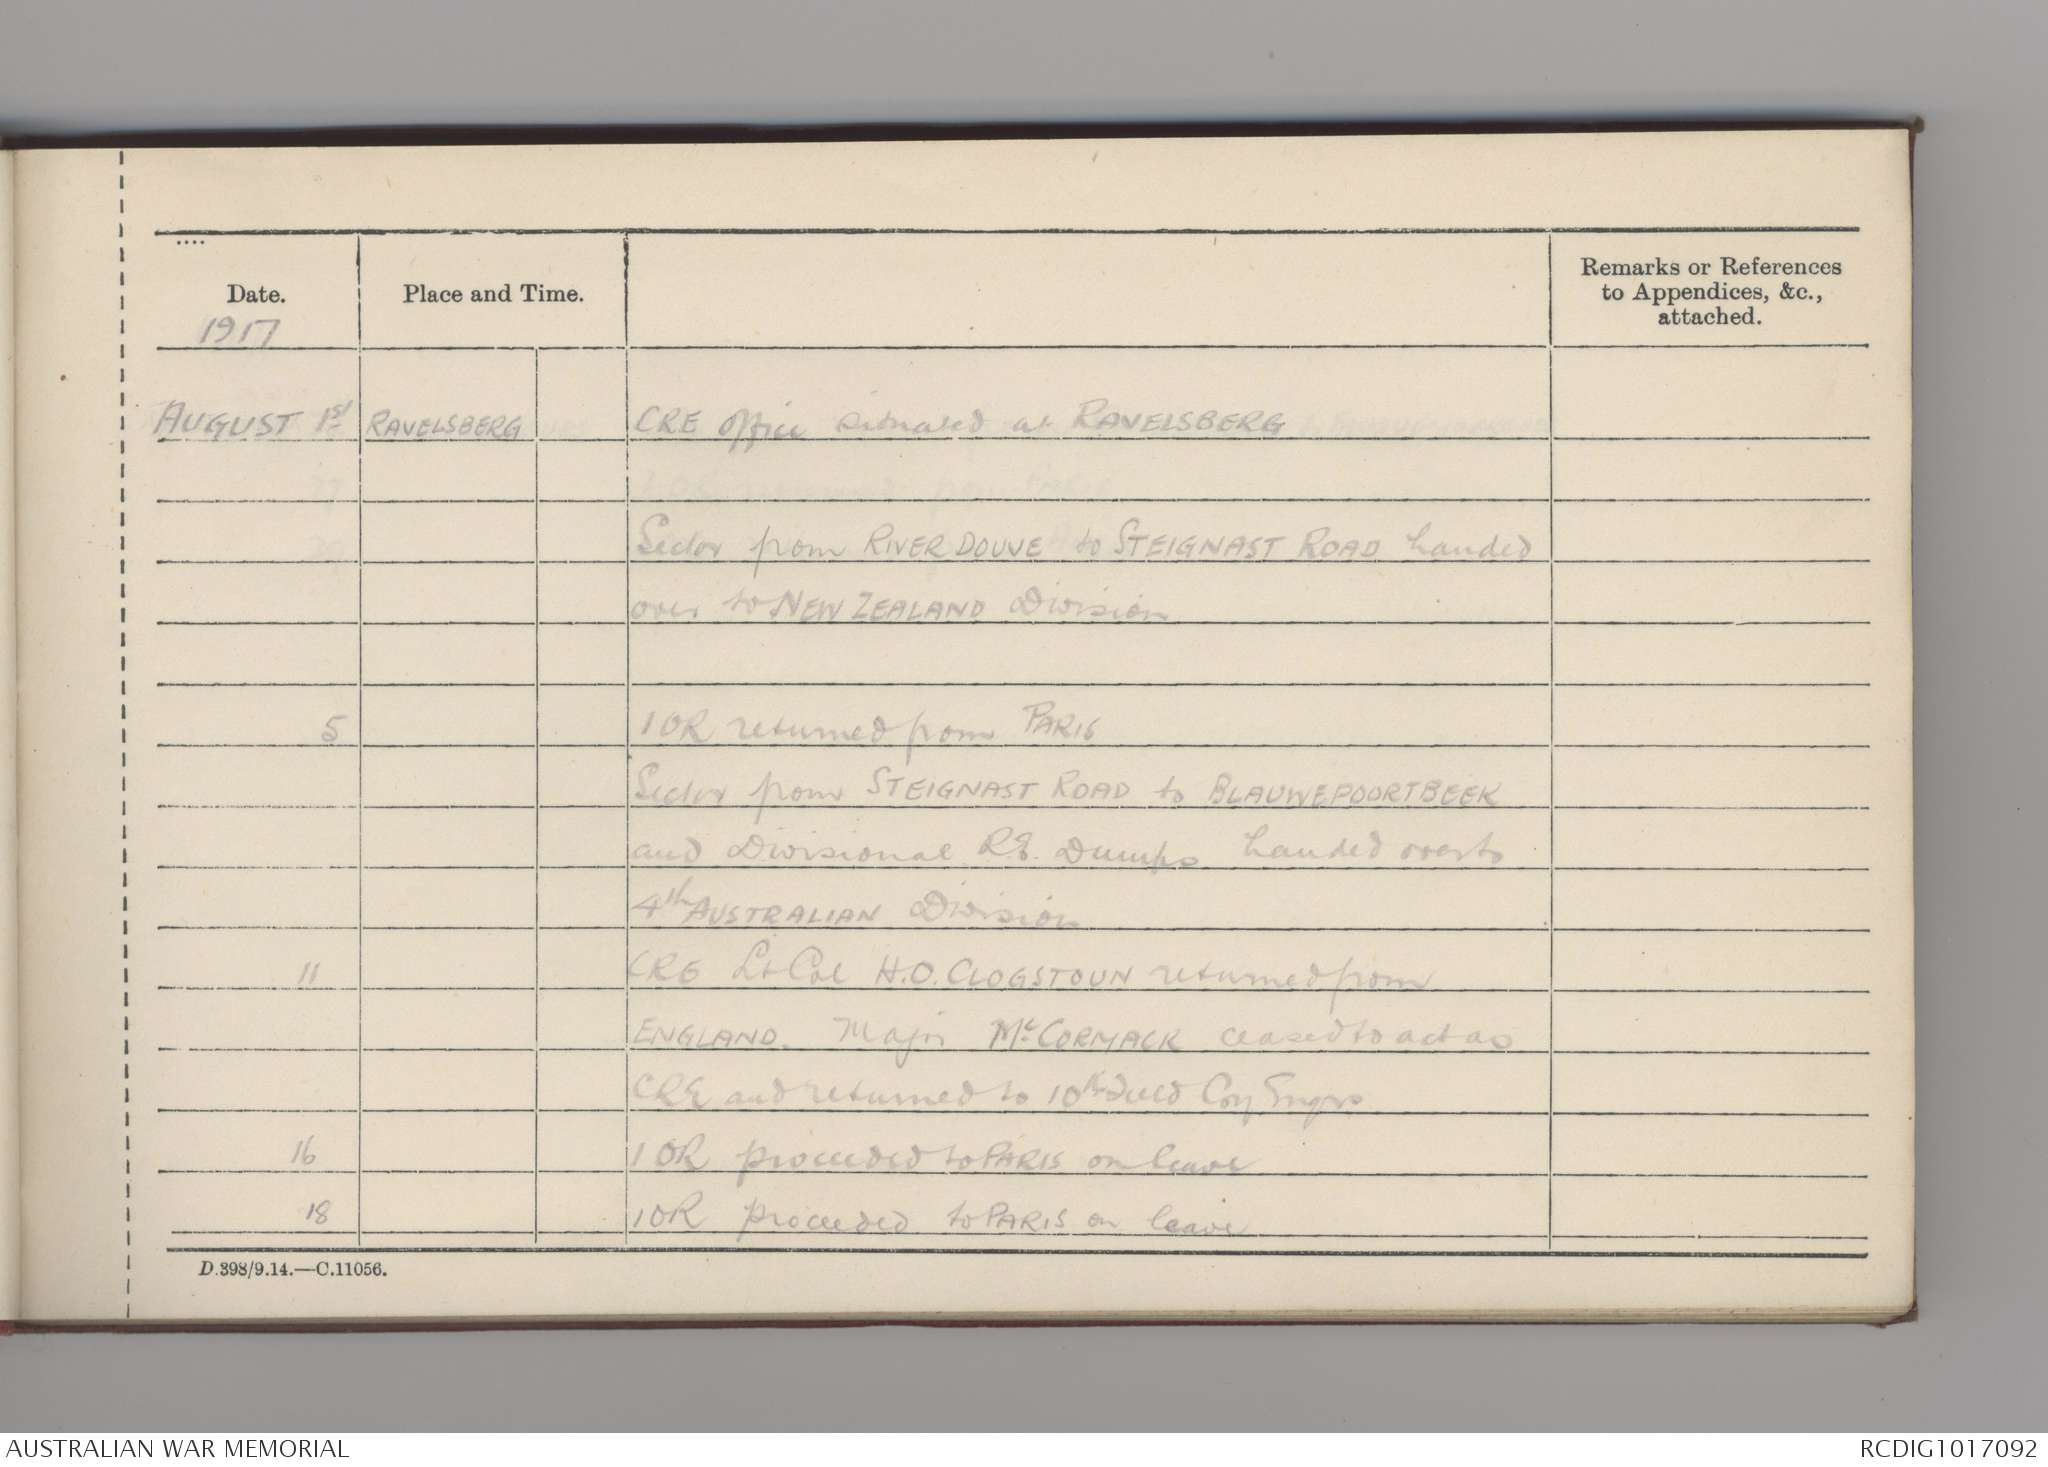 Date.
1917
Place and Time.
Remarks or References
to Appendices, &c.,
attached.
AUGUST 1st RAVELSBERG CRE office situated at RAVELSBERG
Sector from RIVER DOUVE to STEIGNAST ROAD handed
over to NEW ZEALAND Division
5 1 OR returned from PARIS
Sector from STEIGNAST ROAD to BLAUWEPOORTBEEK
and Divisional R.E. Dumps handed over to
4th AUSTRALIAN Division
11 CRE Lt Col H.O. CLOGSTOUN returned from
ENGLAND. Major McCORMACK ceased to act as
CRE and returned to 10th Field Coy Engrs
16 1 OR proceeded to PARIS on leave
18 1 OR proceeded to PARIS on leave
D.398/9.14.—C.11056.
AUSTRALIAN WAR MEMORIAL
RCDIG1017092